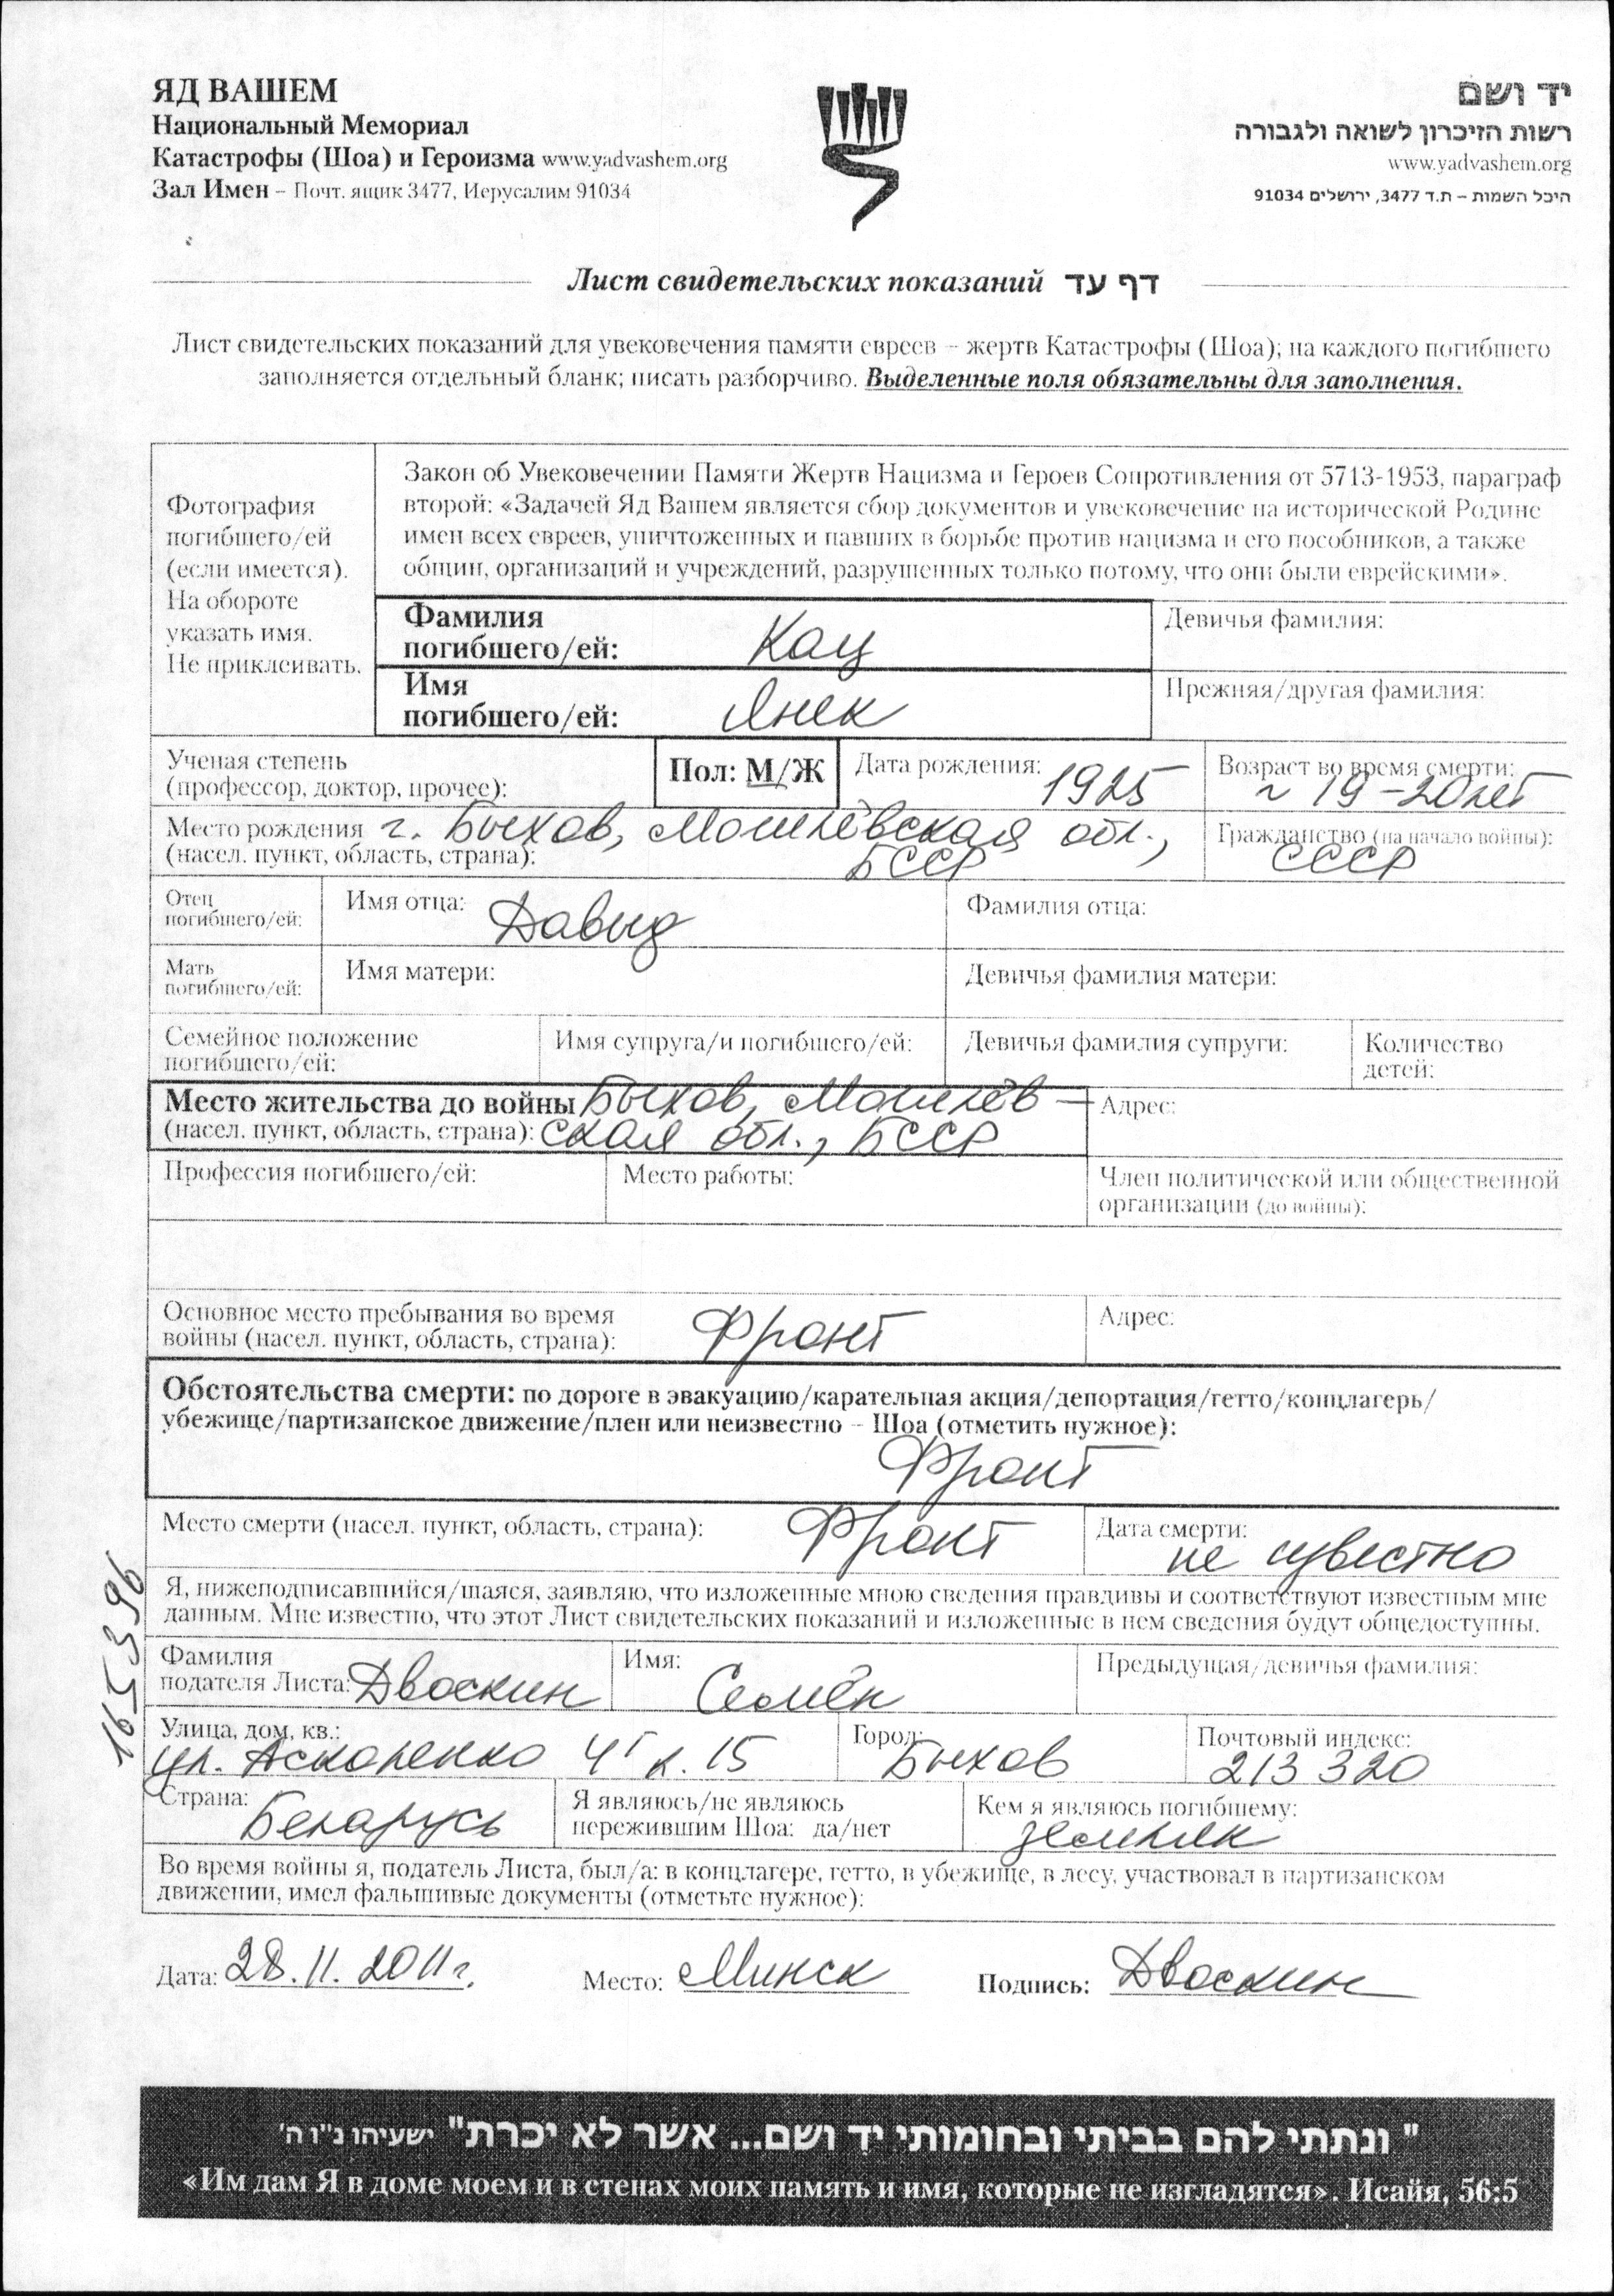 ЯД ВАШЕМ
Национальный Мемориал
Катастрофы (Шоа) и Героизма www.yadvashem.org
Зал Имен – Почт. ящик 3477, Иерусалим 91034
יד ושם
רשות הזיכרון לשואה ולגבורה
www.yadvashem.org
היכל השמות – ת.ד 3477, ירושלים 91034
Лист свидетельских показаний דף עד
Лист свидетельских показаний для увековечения памяти евреев – жертв Катастрофы (Шоа); на каждого погибшего
заполняется отдельный бланк; писать разборчиво. Выделенные поля обязательны для заполнения.
Фотография
погибшего/ей
(если имеется).
На обороте
указать имя.
Не приклеивать.
Закон об Увековечении Памяти Жертв Нацизма и Героев Сопротивления от 5713-1953, параграф
второй: «Задачей Яд Вашем является сбор документов и увековечение на исторической Родине
имен всех евреев, уничтоженных и павших в борьбе против нацизма и его пособников, а также
общин, организаций и учреждений, разрушенных только потому, что они были еврейскими».
Фамилия
погибшего/ей: Кац
Девичья фамилия:
Имя
погибшего/ей: Янек
Прежняя/другая фамилия:
Ученая степень
(профессор, доктор, прочее):
Пол: М/Ж
Дата рождения: 1925
Возраст во время смерти:
~ 19-20 лет
Место рождения г. Быхов, Могилёвская обл.,
(насел. пункт, область, страна): БССР
Гражданство (на начало войны):
СССР
Отец
погибшего/ей:
Имя отца: Давыд
Фамилия отца:
Мать
погибшего/ей:
Имя матери:
Девичья фамилия матери:
Семейное положение
погибшего/ей:
Имя супруга/и погибшего/ей:
Девичья фамилия супруги:
Количество
детей:
Место жительства до войны Быхов, Могилёв-
(насел. пункт, область, страна): ская обл., БССР
Адрес:
Профессия погибшего/ей:
Место работы:
Член политической или общественной
организации (до войны):
Основное место пребывания во время
войны (насел. пункт, область, страна): Фронт
Адрес:
Обстоятельства смерти: по дороге в эвакуацию/карательная акция/депортация/гетто/концлагерь/
убежище/партизанское движение/плен или неизвестно – Шоа (отметить нужное):
Фронт
Место смерти (насел. пункт, область, страна): Фронт
Дата смерти:
не известно
Я, нижеподписавшийся/шаяся, заявляю, что изложенные мною сведения правдивы и соответствуют известным мне
данным. Мне известно, что этот Лист свидетельских показаний и изложенные в нем сведения будут общедоступны.
Фамилия
подателя Листа: Двоскин
Имя: Семён
Предыдущая/девичья фамилия:
Улица, дом, кв.:
ул. Аскаленко 4г к. 15
Город:
Быхов
Почтовый индекс:
213 320
Страна: Беларусь
Я являюсь/не являюсь
пережившим Шоа: да/нет
Кем я являюсь погибшему:
земляк
Во время войны я, податель Листа, был/а: в концлагере, гетто, в убежище, в лесу, участвовал в партизанском
движении, имел фальшивые документы (отметьте нужное):
Дата: 28.11.2011г. Место: Минск Подпись: Двоскин
" ונתתי להם בביתי ובחומותי יד ושם... אשר לא יכרת" ישעיהו נ"ו ה'
«Им дам Я в доме моем и в стенах моих память и имя, которые не изгладятся». Исайя, 56:5